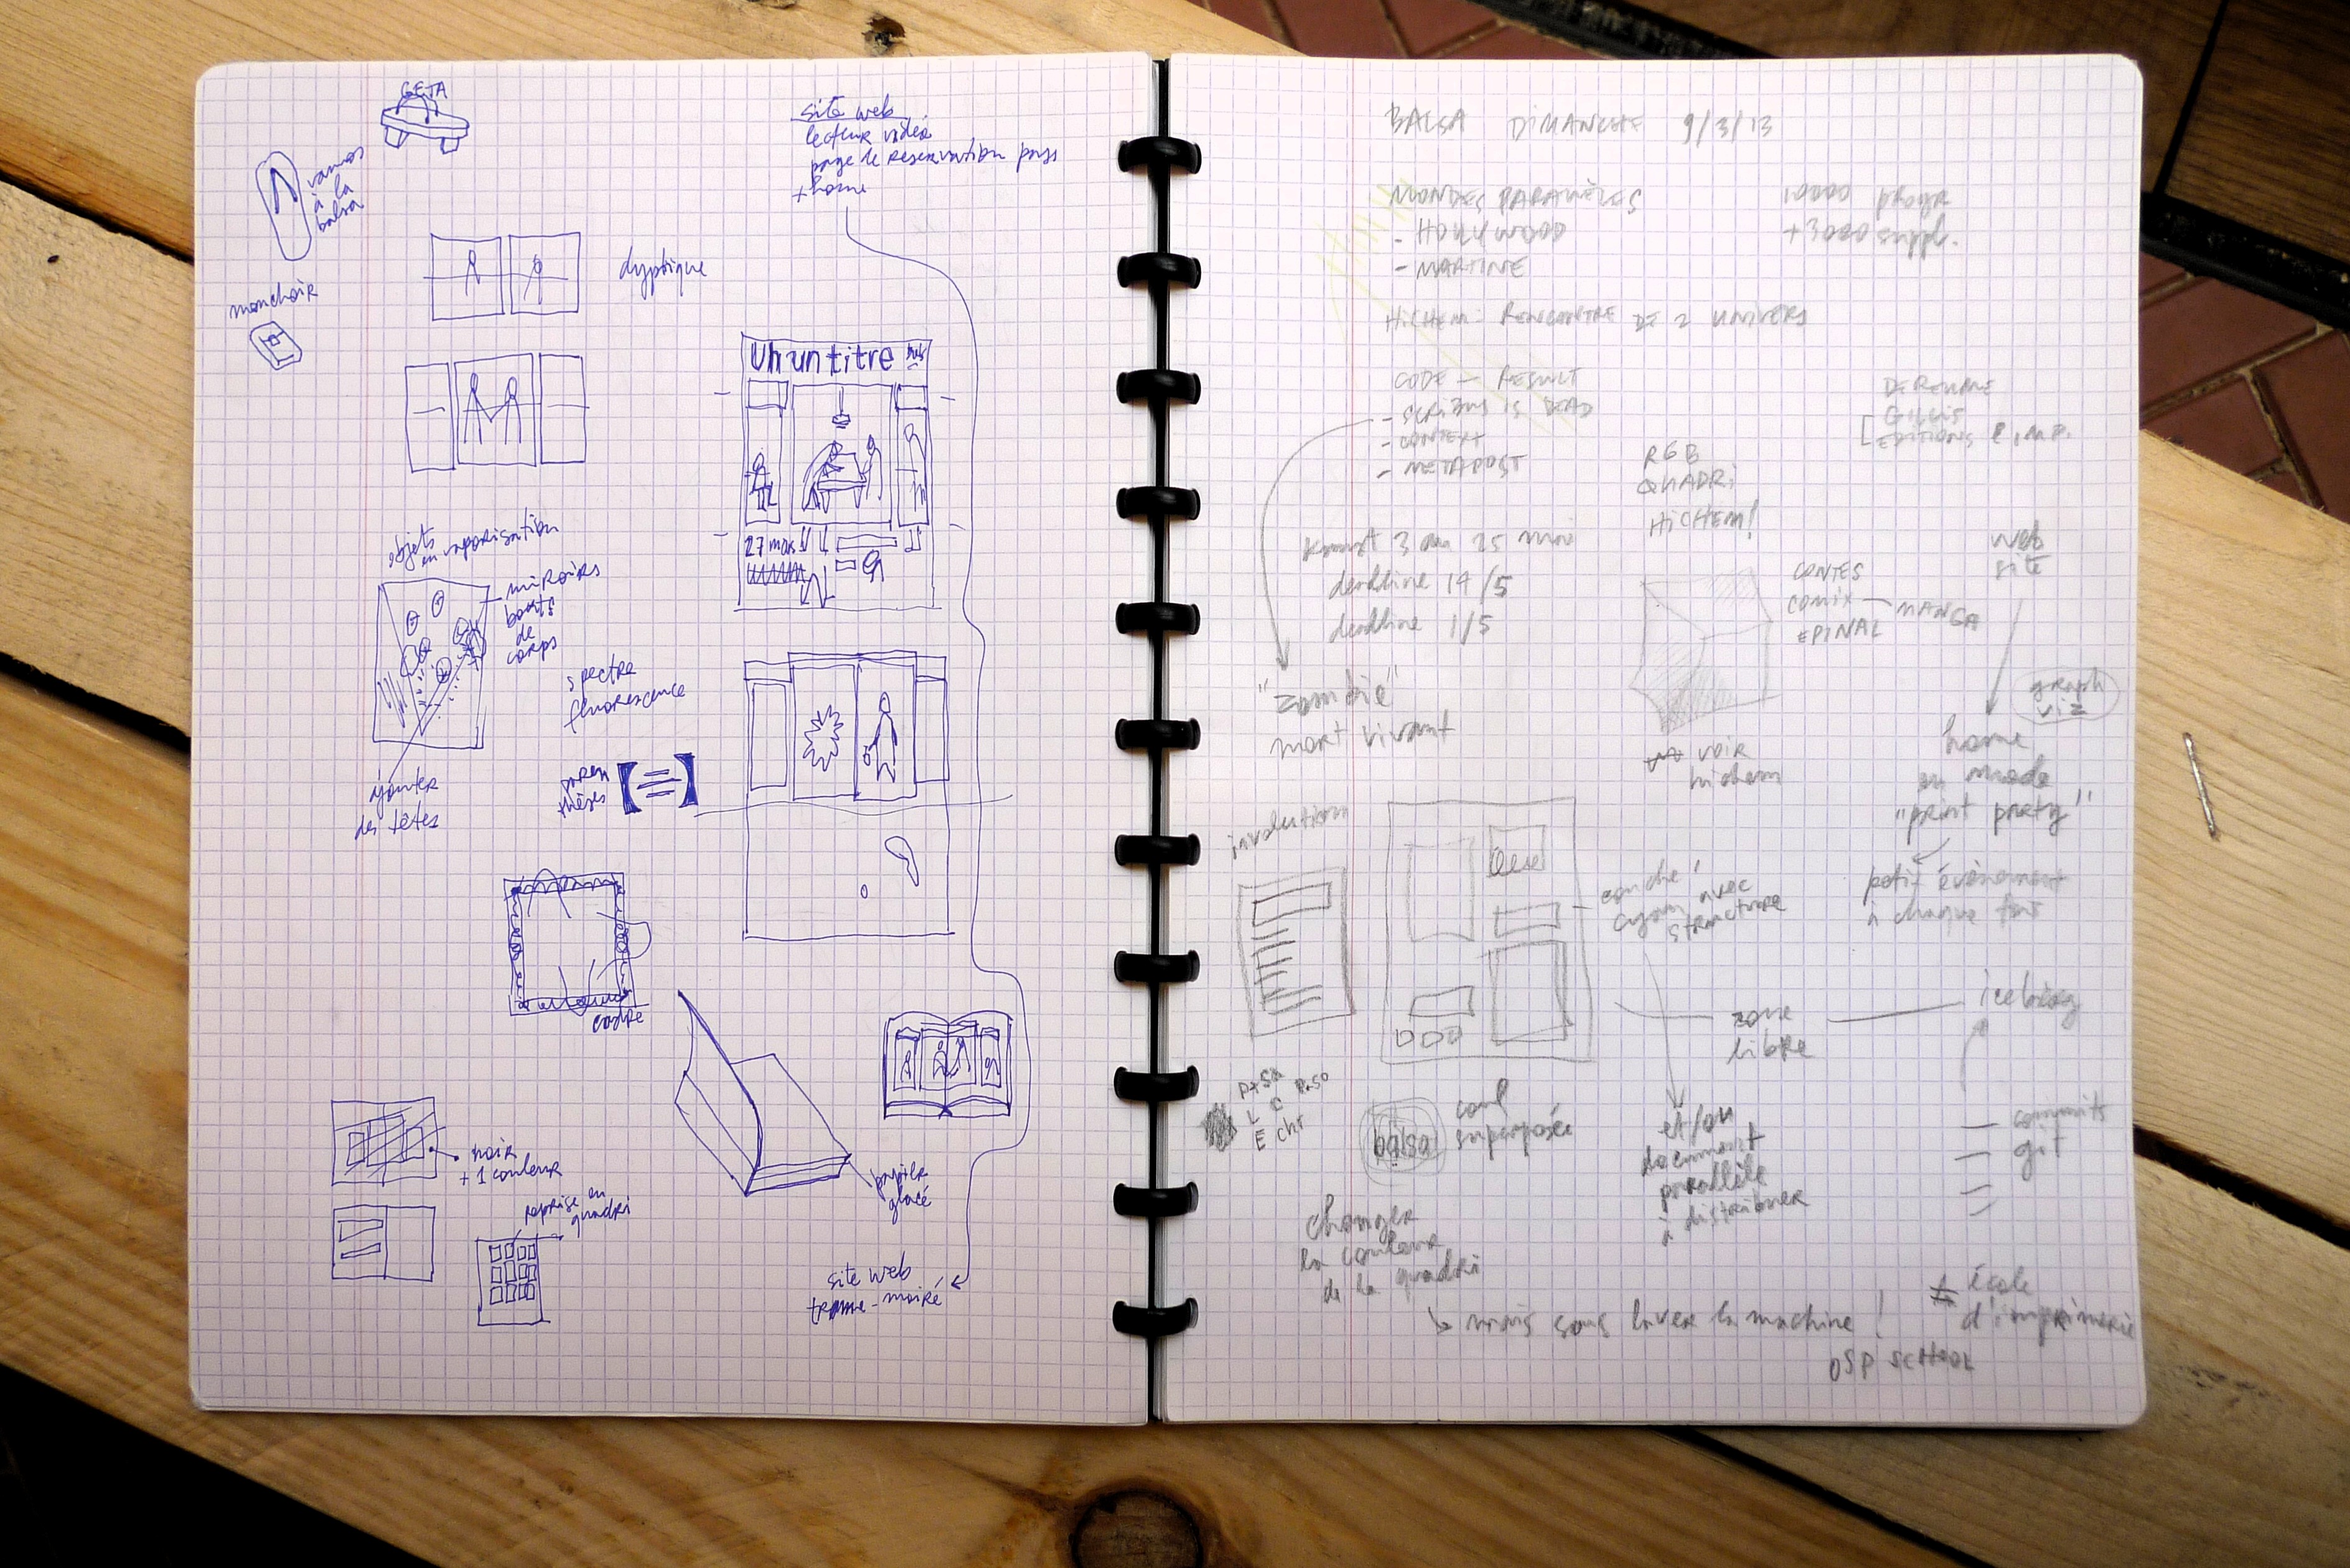 GETA
vamos
à la
balsa
mouchoir
dyptique
site web
lecteur vidéo
page de reservation
+ home
Un un titre
27 mars
objets
en vaporisation
miroirs
bouts
de
corps
spectre
fluorescence
ajouter
des têtes
paren
thèses
cadre
noir
+ 1 couleur
reprise en
quadri
papier
glacé
site web
trame - moiré
BALSA DIMANCHE 9/3/13
MONDES PARALLÈLES
- HOLLYWOOD
- MARTINE
10000 progr
+ 3000 suppl.
HICHEM : RENCONTRE DE 2 UNIVERS
CODE – RESULT
- SCRIBUS IS DEAD
- CONTEXT
- METAPOST
GILLIS
EDITIONS
RGB
QUADRI
HICHEM!
3 au 25 mai
deadline 14/5
deadline 1/5
"zombie"
mort vivant
CONTES
COMIX — MANGA
EPINAL
web
site
graph
viz
voir
hichem
home
en mode
"print party"
petit évènement
à chaque fois
involution
couche
cyan avec
structure
zone
libre
iceberg
balsa
coul
superposée
et/ou
document
parallèle
à distribuer
commits
git
changer
la couleur
de la quadri
mais sans laver la machine !
école
d'imprimerie
OSP SCHOOL